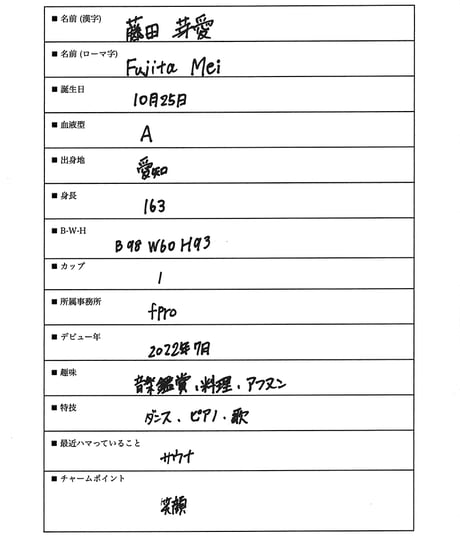 ■ 名前 (漢字)
藤田 芽愛
■ 名前 (ローマ字)
Fujita Mei
■ 誕生日
10月25日
■ 血液型
A
■ 出身地
愛知
■ 身長
163
■ B-W-H
B98 W60 H93
■ カップ
I
■ 所属事務所
fpro
■ デビュー年
2022年7月
■ 趣味
音楽鑑賞、料理、アフヌン
■ 特技
ダンス、ピアノ・歌
■ 最近ハマっていること
サウナ
■ チャームポイント
笑顔